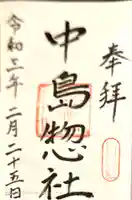 奉拝
中島惣社
令和三年二月二十五日